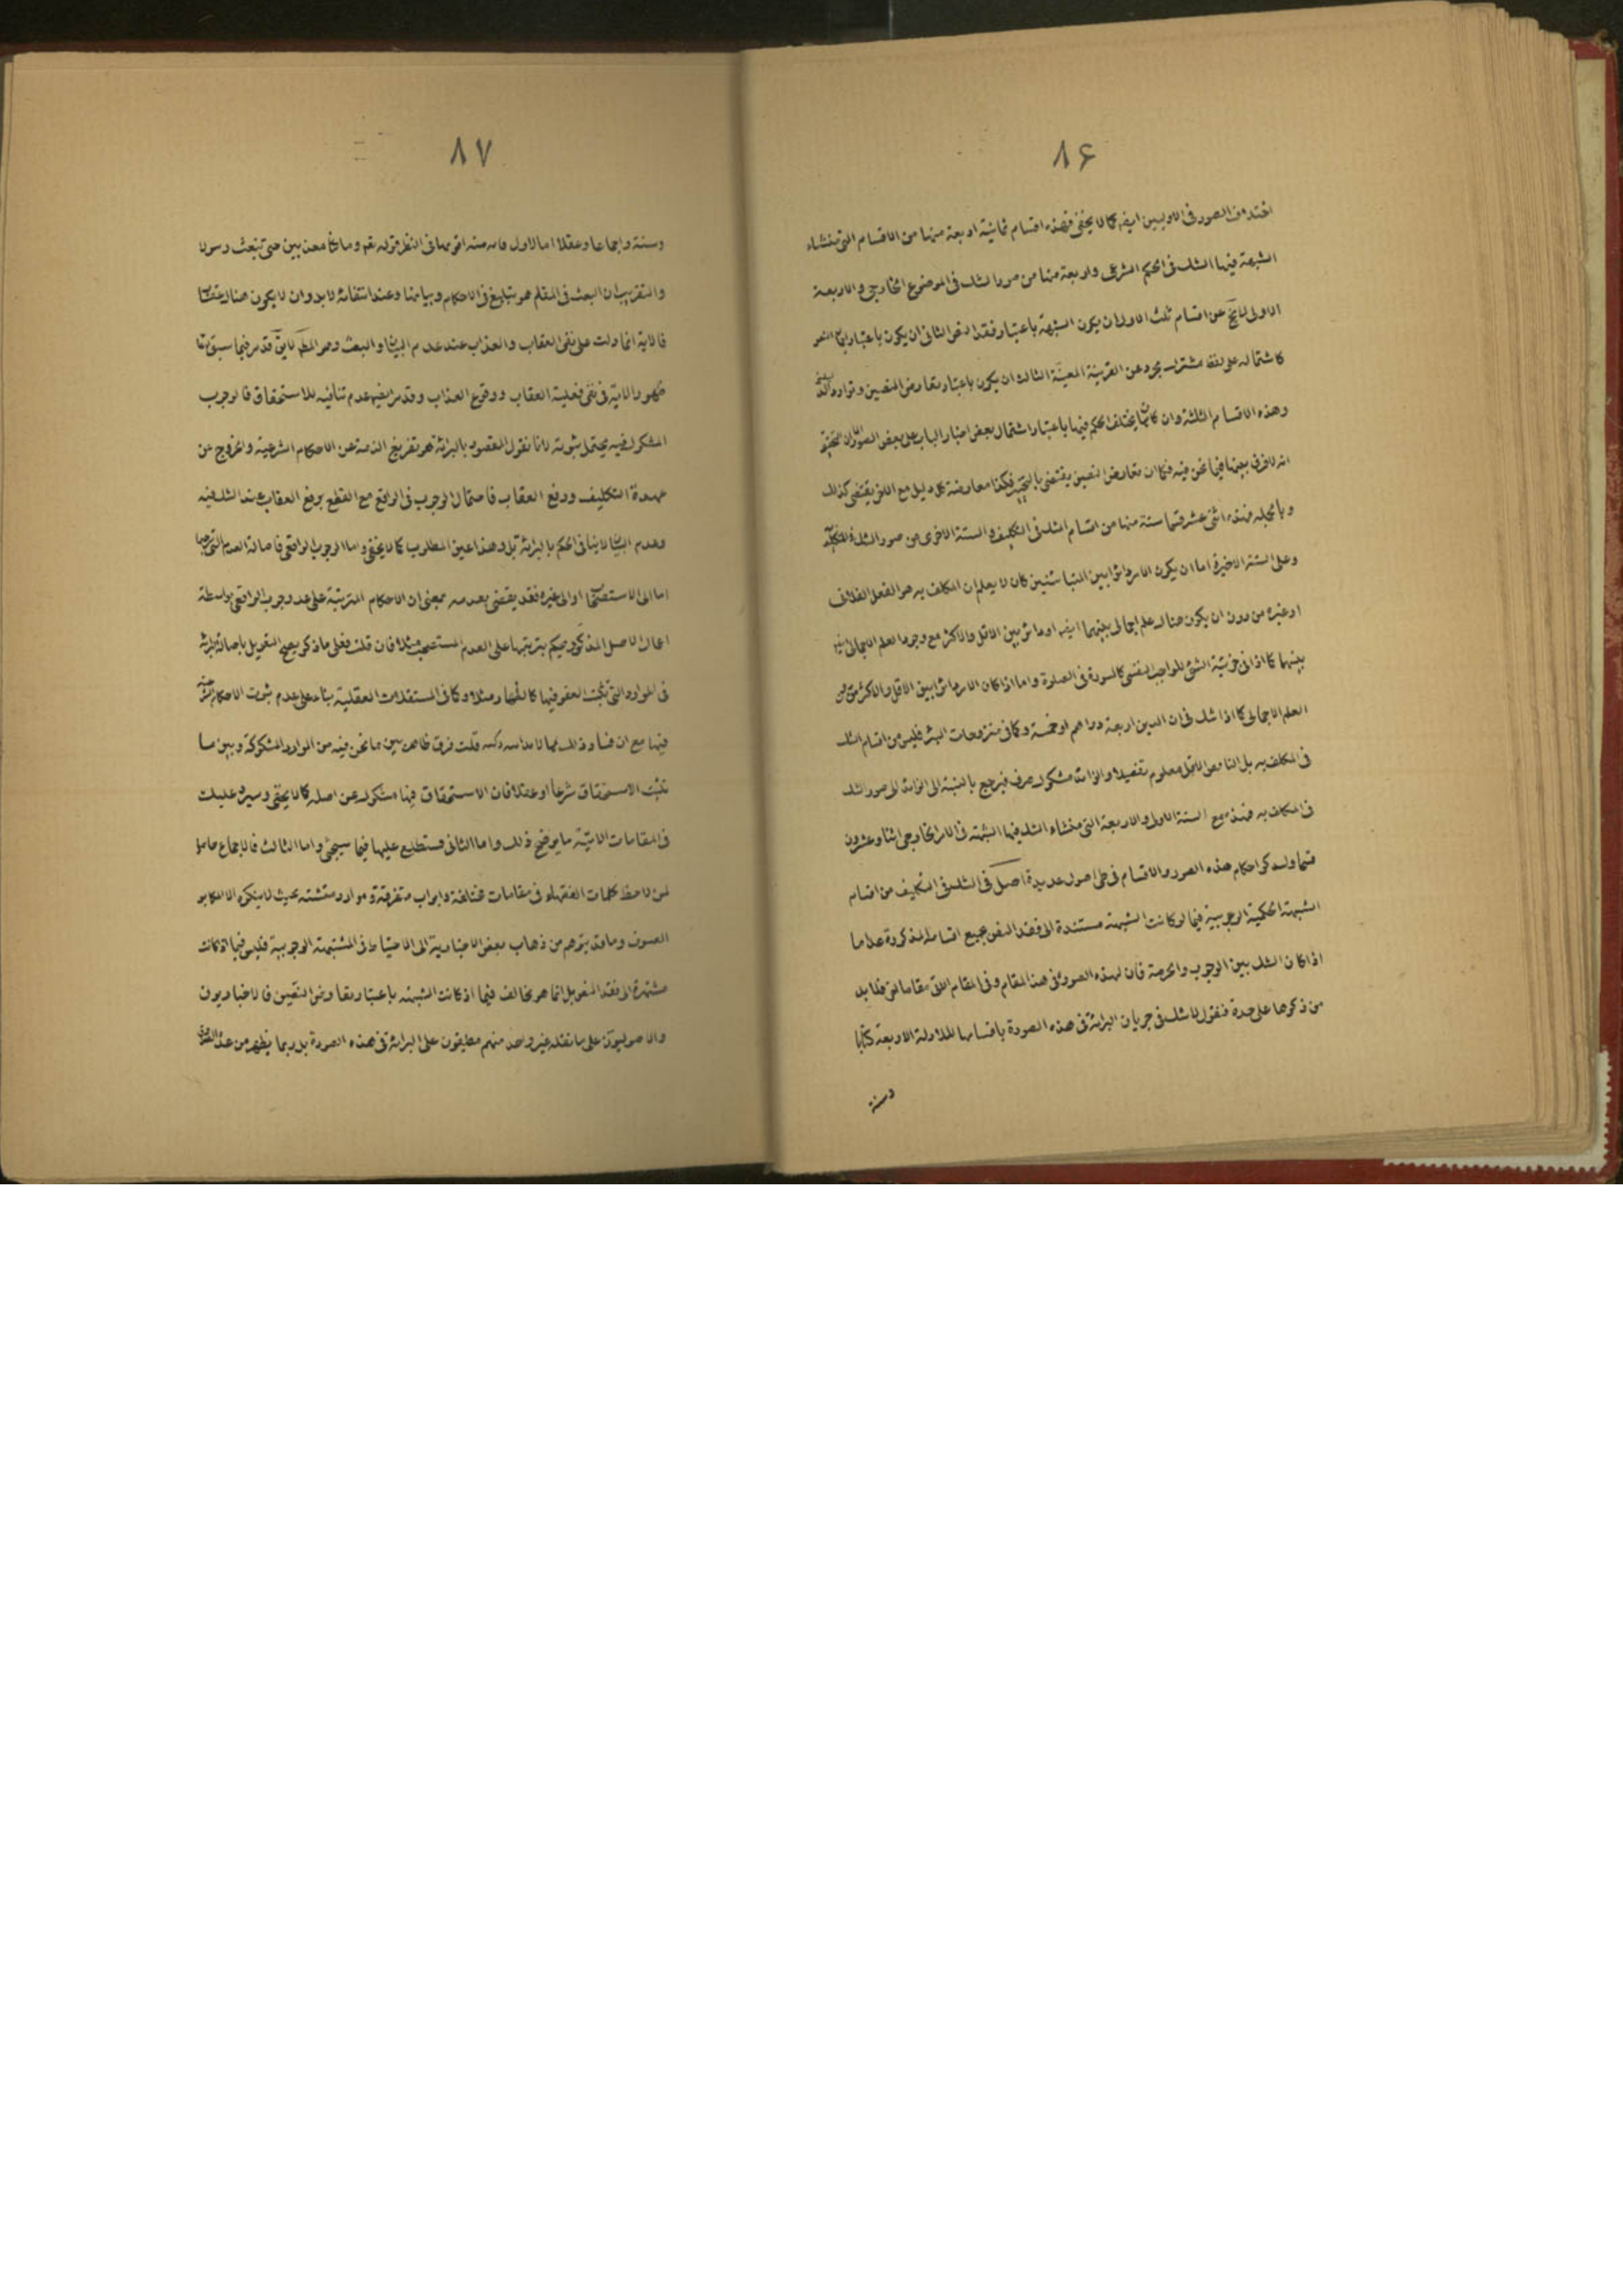 ٨۶
اختلاف الصور فى الاوليين ايضا كما لا يخفى فهذه اقسام ثمانية اربعة منها من الاقسام التى منشاء
الشبهة فيها الشك فى الحكم الشرعى واربعة منها من صور الشك فى الموضوع الخارجى والاربعة
الاولى لا يخ عن اقسام ثلث الاول ان يكون الشبهة باعتبار فقد النص الثانى ان يكون باعتبار اجمال النص
كاشتماله على لفظ مشترك مجرد عن القرينة المعينة الثالث ان يكون باعتبار تعارض النصين وتوارد
وهذه الاقسام الثلثة وان كان يختلف الحكم فيها باعتبار اشتمال بعض اخبار الباب على بعض الصور
انه لا فرق بينها فيما نحن فيه فكما ان تعارض النصين يقتضى بالتخيير فكذا معارضة كل دليل مع الاخر يقتضى كذلك
وبالجملة فهذه اثنى عشر قسما ستة منها من اقسام الشك فى التكليف والستة الاخرى من صور الشك
وعلى الستة الاخيرة اما ان يكون الامر دائرا بين المتباينين كان لا يعلم ان المكلف به هو الفعل الفلانى
او غيره من دون ان يكون هناك علم اجمالى بينهما ايضا او دائر بين الاقل والاكثر مع وجود العلم الاجمالى
بينهما كما اذا فى جزئية الشئ للواجب النفسى كالسورة فى الصلوة واما اذا كان الامر دائرا بين الاقل والاكثر من
العلم الاجمالى كما اذا شك فى ان الدين اربعة دراهم او خمسة وكما فى منزوحات البئر فليس من اقسام الشك
فى المكلف به بل الناقص الاقل معلوم تفصيلا والزائد مشكوك صرف فيرجع بالنسبة الى الزائد الى صور الشك
فى المكلف به فهذه مع الستة الاولى والاربعة التى منشاء الشك فيها الشبهة فى الامر الخارجى اثنا وعشرون
قسما ولنذكر احكام هذه الصور والاقسام فى طى اصول عديدة اصل فى الشك فى التكليف من اقسام
الشبهة الحكمية الوجوبية فيما لو كانت الشبهة مستندة الى فقد النص بجميع اقسامه المذكورة عدا ما
اذا كان الشك بين الوجوب والحرمة فان لهذه الصورة فى هذا المقام وفى المقام الاتى مقاما اخر فلا بد
من ذكرها على حدة فنقول لا شك فى جريان البرائة فى هذه الصورة باقسامها للادلة الاربعة كتابا
وسنة
٨٧
وسنة واجماعا وعقلا اما الاول فانه منه اقويها فى النظر قوله تعم وما كنا معذبين حتى نبعث رسولا
والتقريب ان البعث فى المقام هو تبليغ الاحكام وبيانها وعند انتفائه لا بد وان لا يكون هناك عقاب
فالاية انما دلت على نفى العقاب والعذاب عند عدم البيان والبعث وهو المط لا يق قد مر فيما سبق
ظهور الاية فى نفى فعلية العقاب ووقوع العذاب وقد مر ايضا عدم تنافيه للاستحقاق فالوجوب
المشكوك فيه يحتمل ثبوته لانا نقول المقصود بالبرائة هو تفريغ الذمة عن الاحكام الشرعية والخروج عن
عهدة التكليف ورفع العقاب فاحتمال الوجوب فى الواقع مع القطع برفع العقاب عند الشك فيه
وعدم البيان لا ينافى الحكم بالبرائة بل وهذا عين المطلوب كما لا يخفى واما الوجوب الواقعى فاصالة العدم التى
اما الى الاستصحاب او الى غيره فقد يقتضى بعدمه بمعنى ان الاحكام المترتبة على عدم وجوب الواقعى بواسطة
اعمال الاصل المذكور يحكم بترتبها على العدم المستصحب مثلا فان قلت فعلى ما ذكر يصح التعويل باصالة البرائة
فى الموارد التى ثبت العفو فيها كالظهار مثلا وكما فى المستقلات العقلية بناء على عدم ثبوت الاحكام
فيها مع ان فساد ذلك مما لا قلت فرق ظاهر بين ما نحن فيه من الموارد المشكوكة وبين ما
ثبت الاستحقاق شرعا او عقلا فان الاستحقاق فيها مشكوك عن اصله كما لا يخفى وسيرد عليك
فى المقامات الاتية ما يوضح ذلك واما الثانى فستطلع عليها فيما سيجئ واما الثالث فالاجماع حاصل
لمن لاحظ كلمات الفقهاء فى مقامات مختلفة وابواب متفرقة وموارد متشتته بحيث لا ينكره الا المكابر
العسوف وما قد يتوهم من ذهاب بعض الاخبارية الى الاحتياط فى المشتبهة الوجوبية فليس فيما اذا كانت
مستندة الى فقد النص بل انما هو مخالف فيما اذ كانت الشبهة باعتبار تعارض النصين فالاخباريون
والاصوليون على ما نقله غير واحد منهم مطبقون على البرائة فى هذه الصورة بل ربما يظهر من